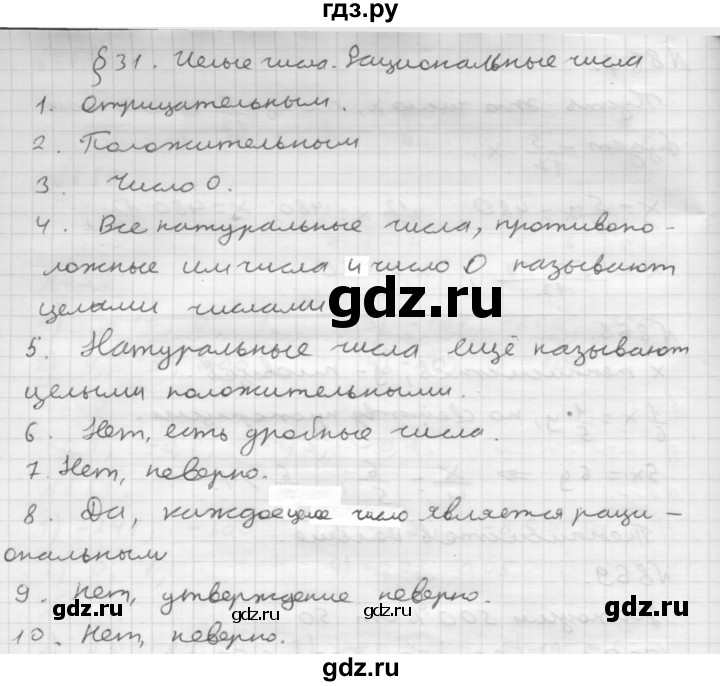 гдз.ру
§31. Целые числа. Рациональные числа
1. Отрицательным.
2. Положительным
3. Число 0.
4. Все натуральные числа, противопо-
ложные им числа и число 0 называют
целыми числами
gdz.ru
5. Натуральные числа ещё называют
целыми положительными.
6. Нет, есть дробные числа.
7. Нет, неверно.
8. Да, каждое целое число является раци-
ональным
9. Нет, утверждение неверно.
gdz.ru gdz.ru
10. Нет, неверно.
gdz.ru